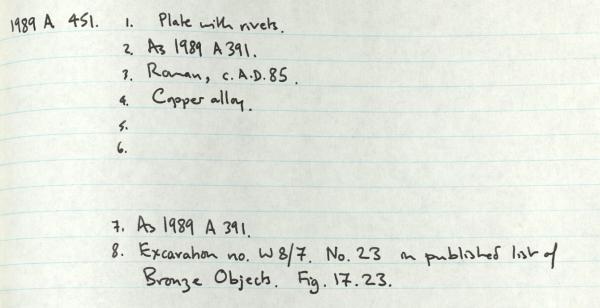 1989 A 451. 1. Plate with rivets.
2. As 1989 A 391.
3. Roman, c. A.D. 85.
4. Copper alloy.
5.
6.
7. As 1989 A 391.
8. Excavation no. W8/7. No. 23 on published list of
Bronze Objects. Fig. 17.23.